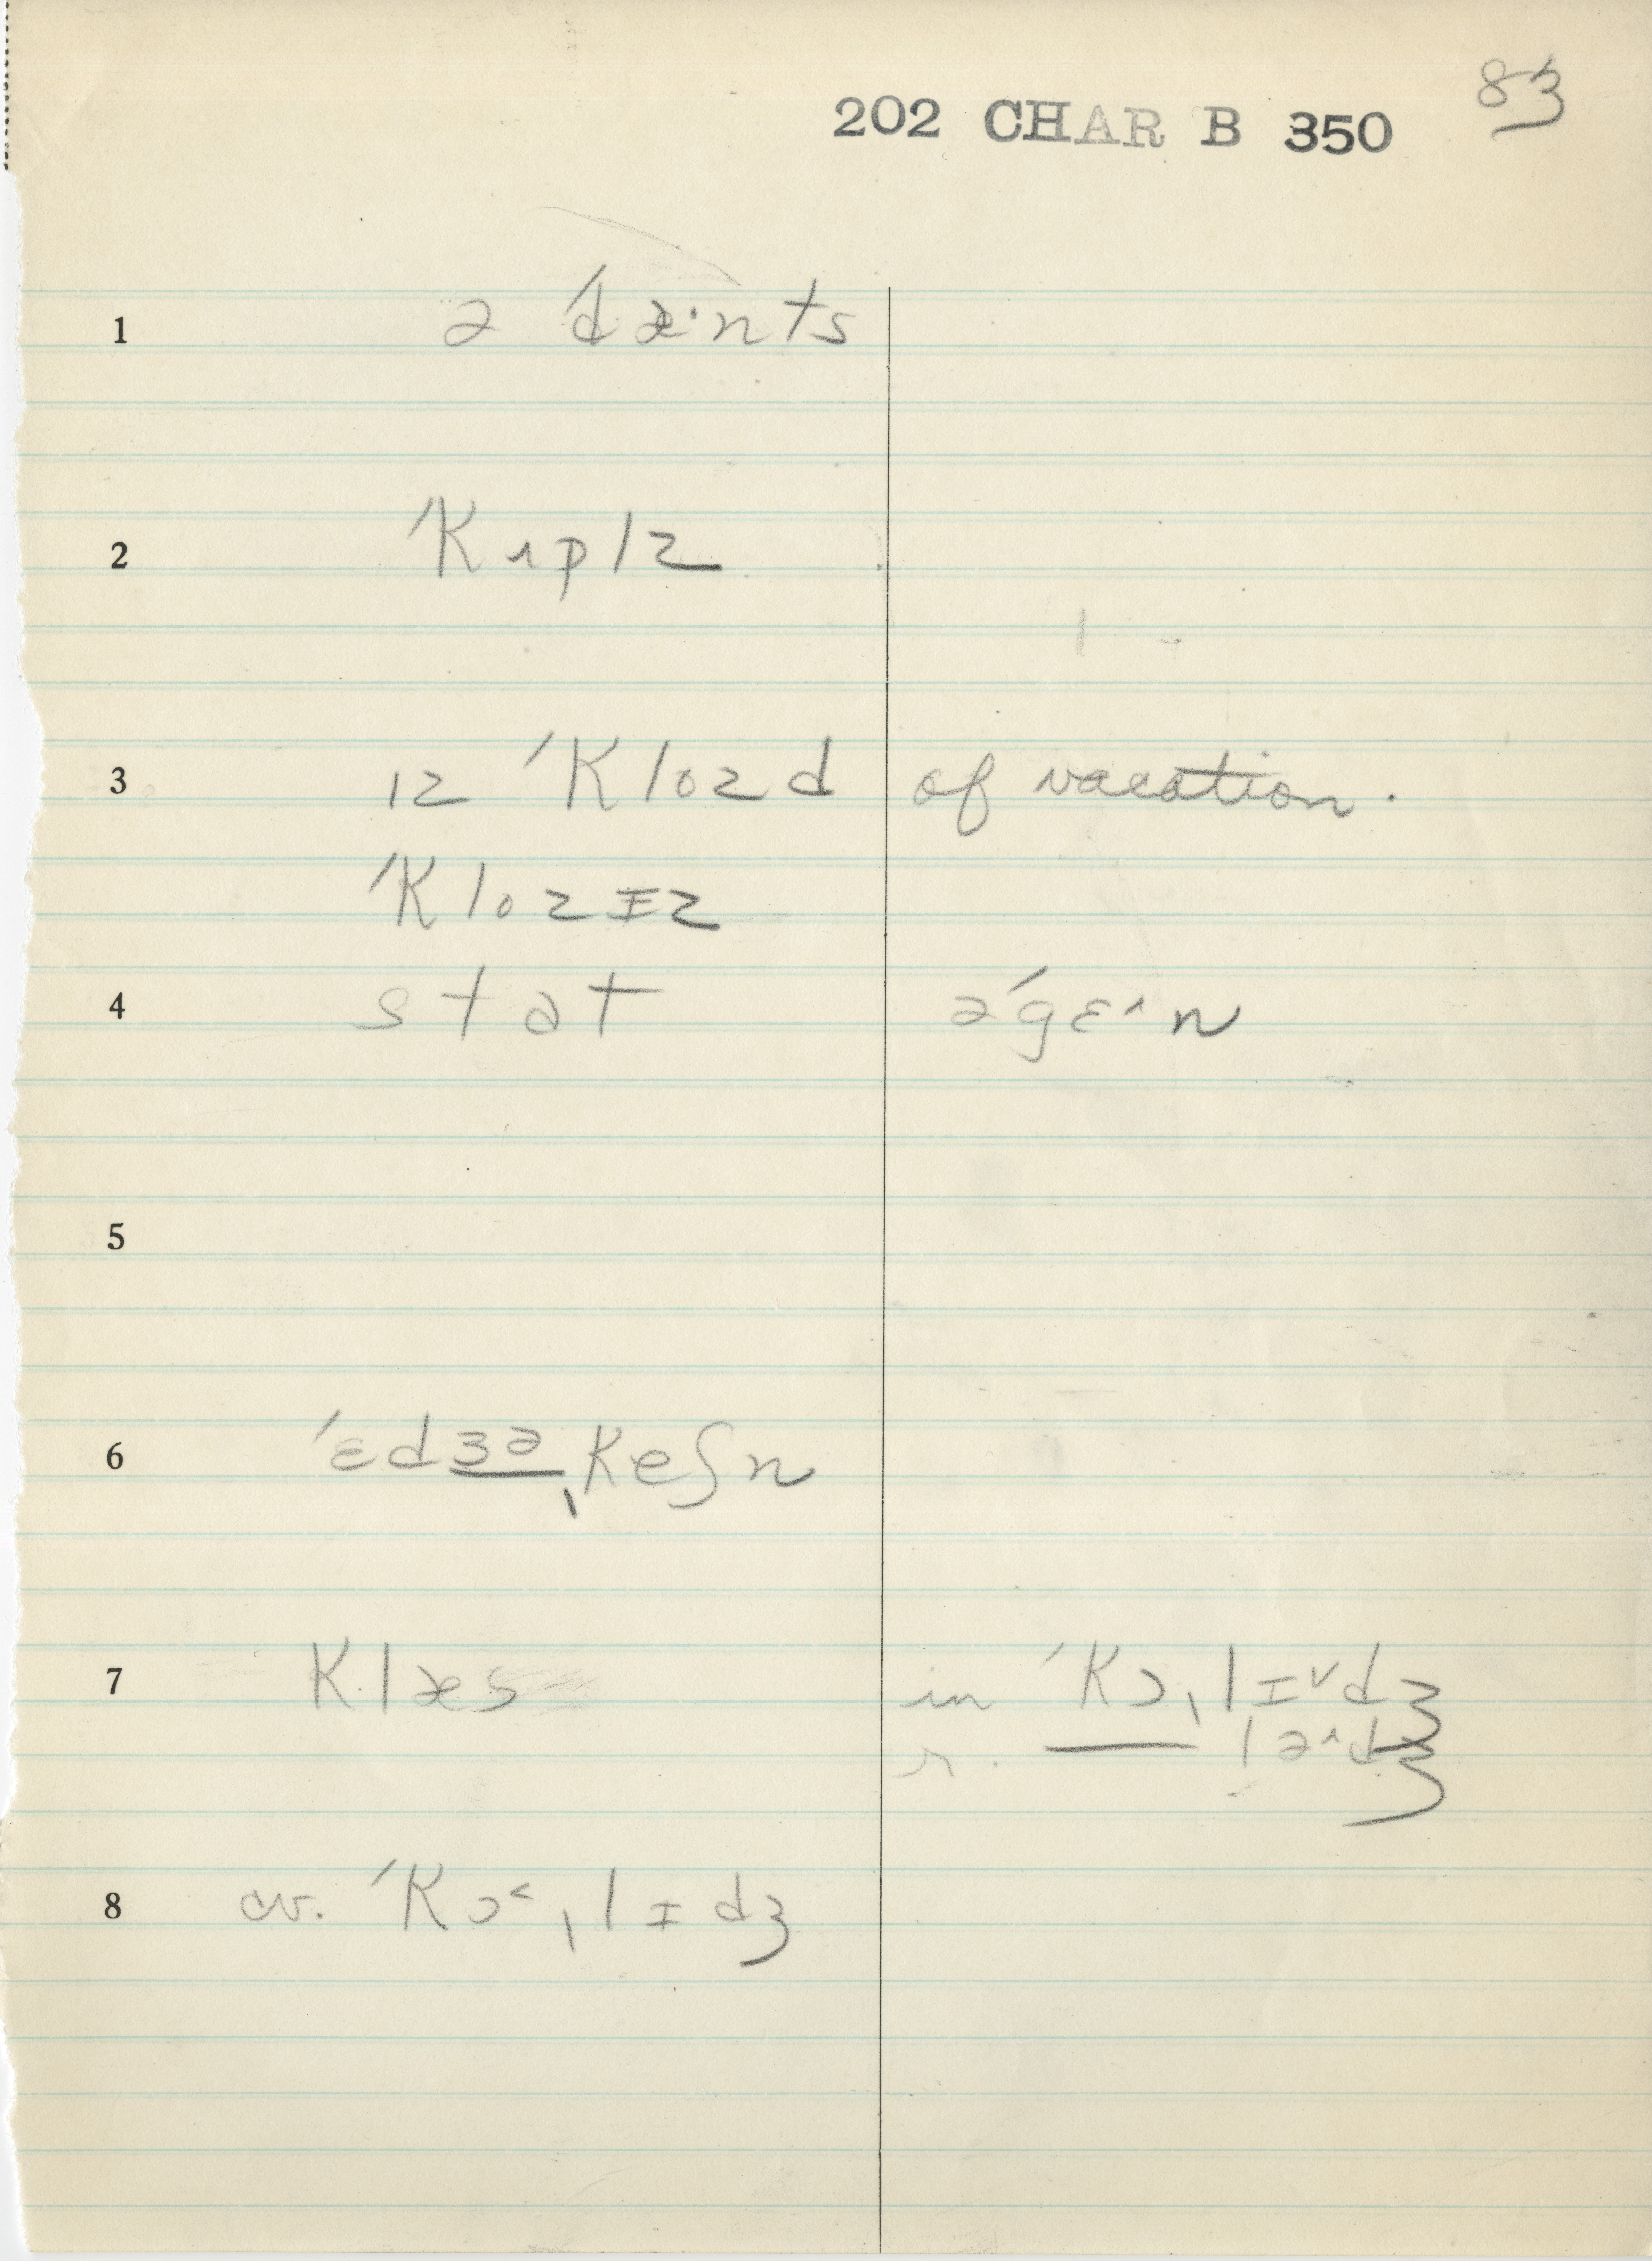 83
202 CHAR B 350
1 ə ˈdæ·nts
2 ˈkɪplz
3 ɪz ˈklozd of vacation.
ˈklozɪz
4 stət əˈgɛ˄n
5
6 ˈɛdʒəˌkeʃn
7 klæs in ˈkɔˌlɪ˅dʒ
r. —— lə˄dʒ
8 cv. ˈkɔ˂ˌlɪdʒ